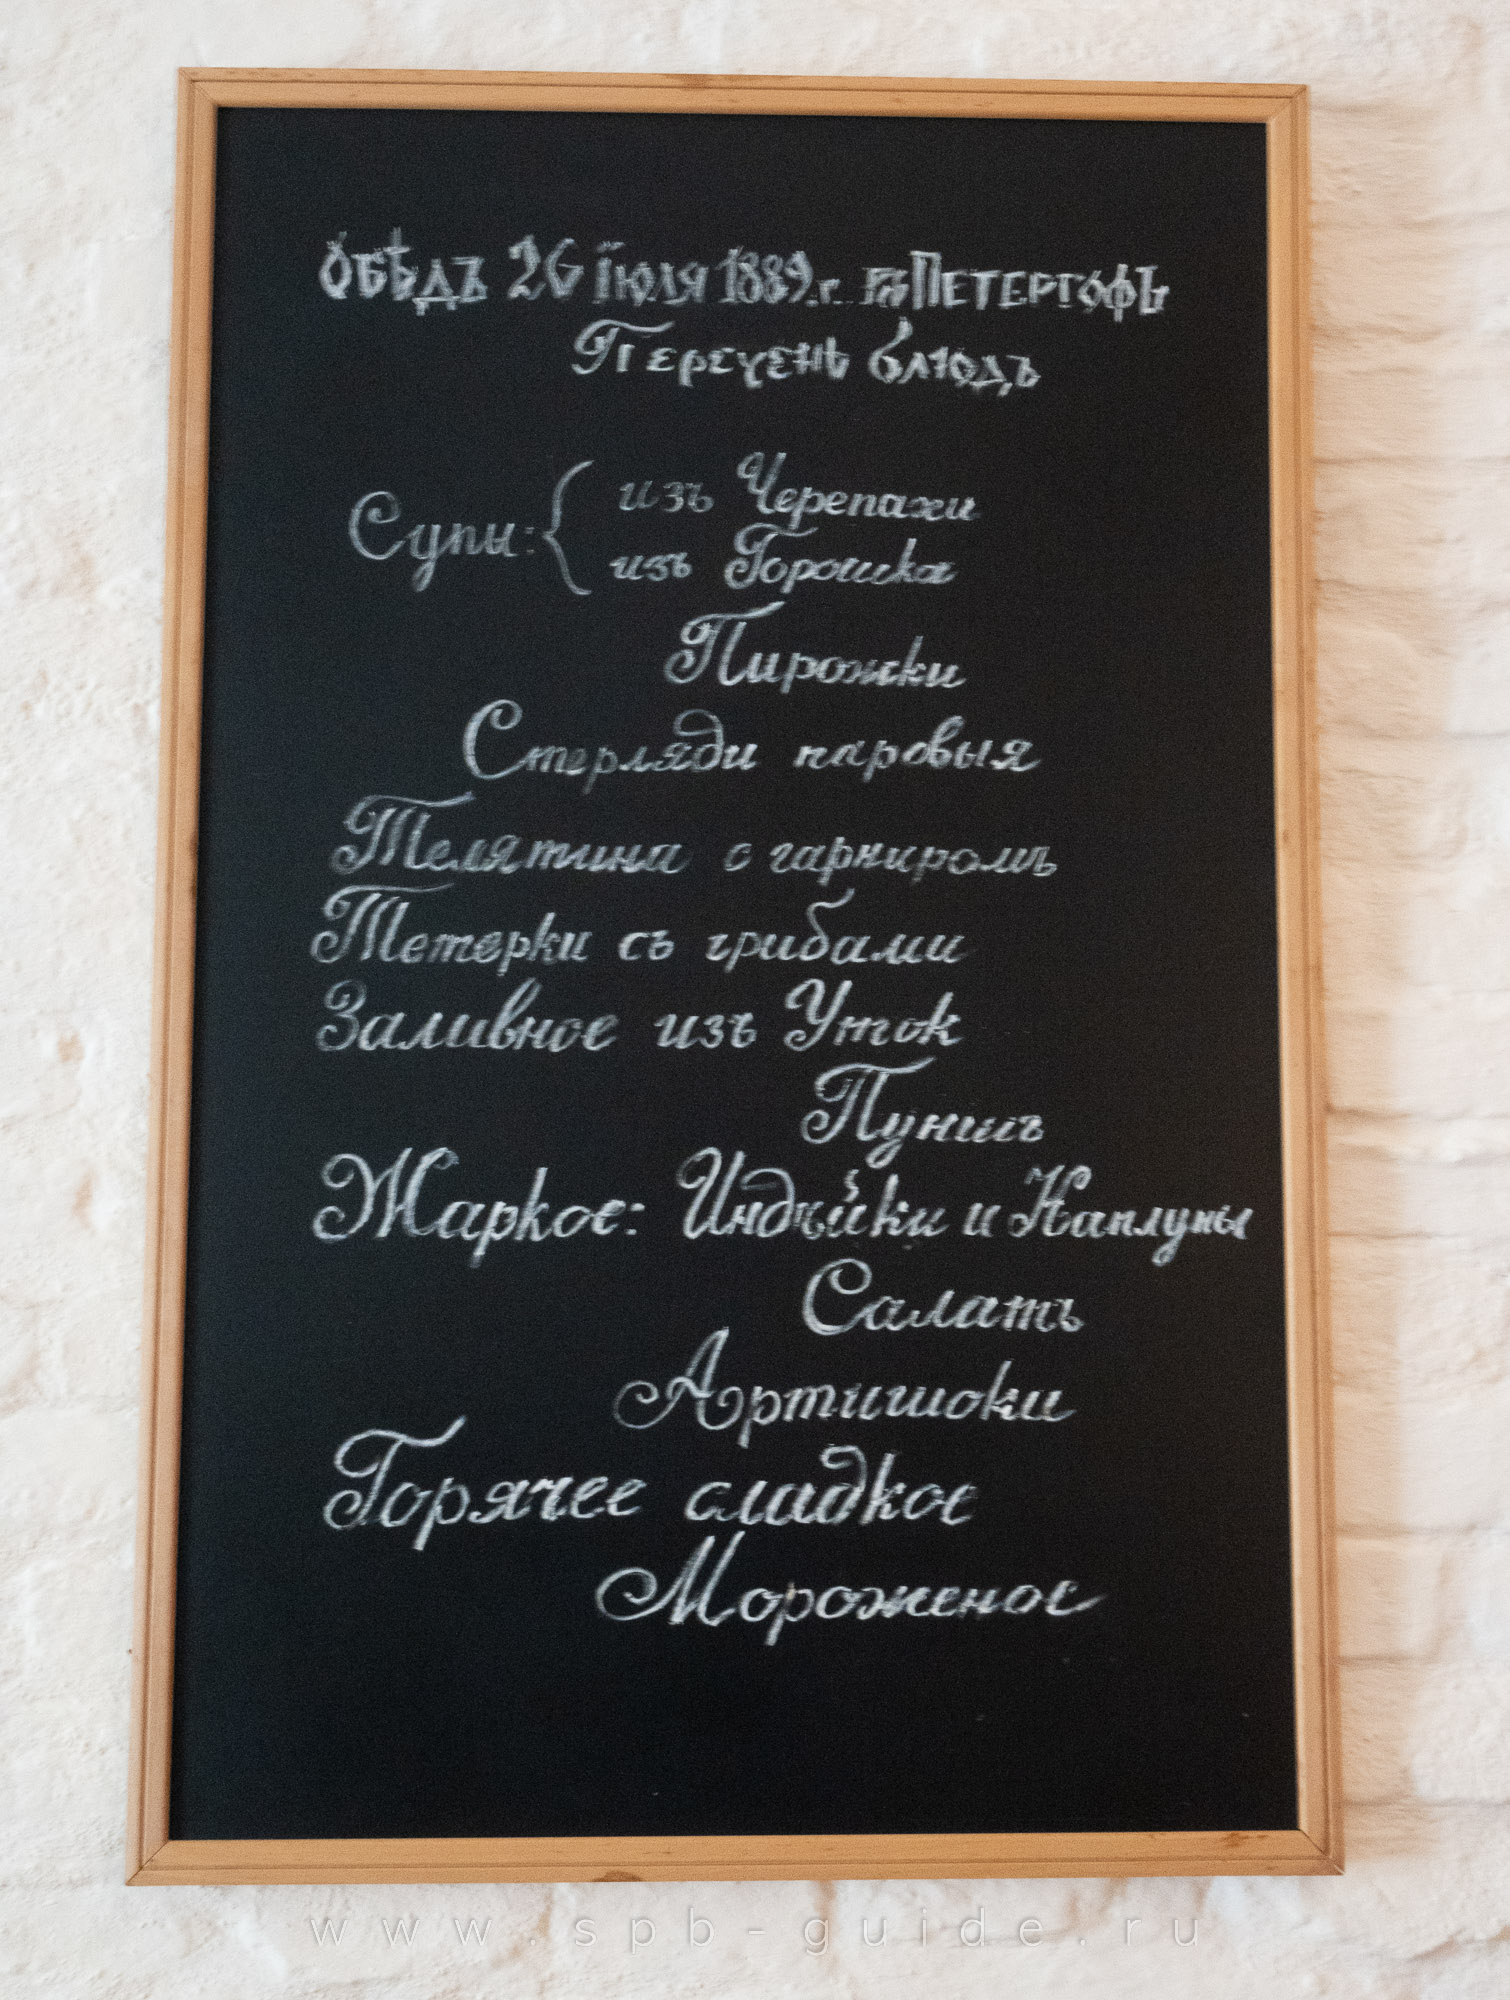 Обѣдъ 26 iюля 1889.г. въ Петергофѣ
Перечень блюдъ
Супы: { изъ Черепахи
изъ Горошка
Пирожки
Стерляди паровыя
Телятина с гарниромъ
Тетерки съ грибами
Заливное изъ Уток
Пуншъ
Жаркое: Индѣйки и Каплуны
Салатъ
Артишоки
Горячее сладкое
Мороженое
www.spb-guide.ru